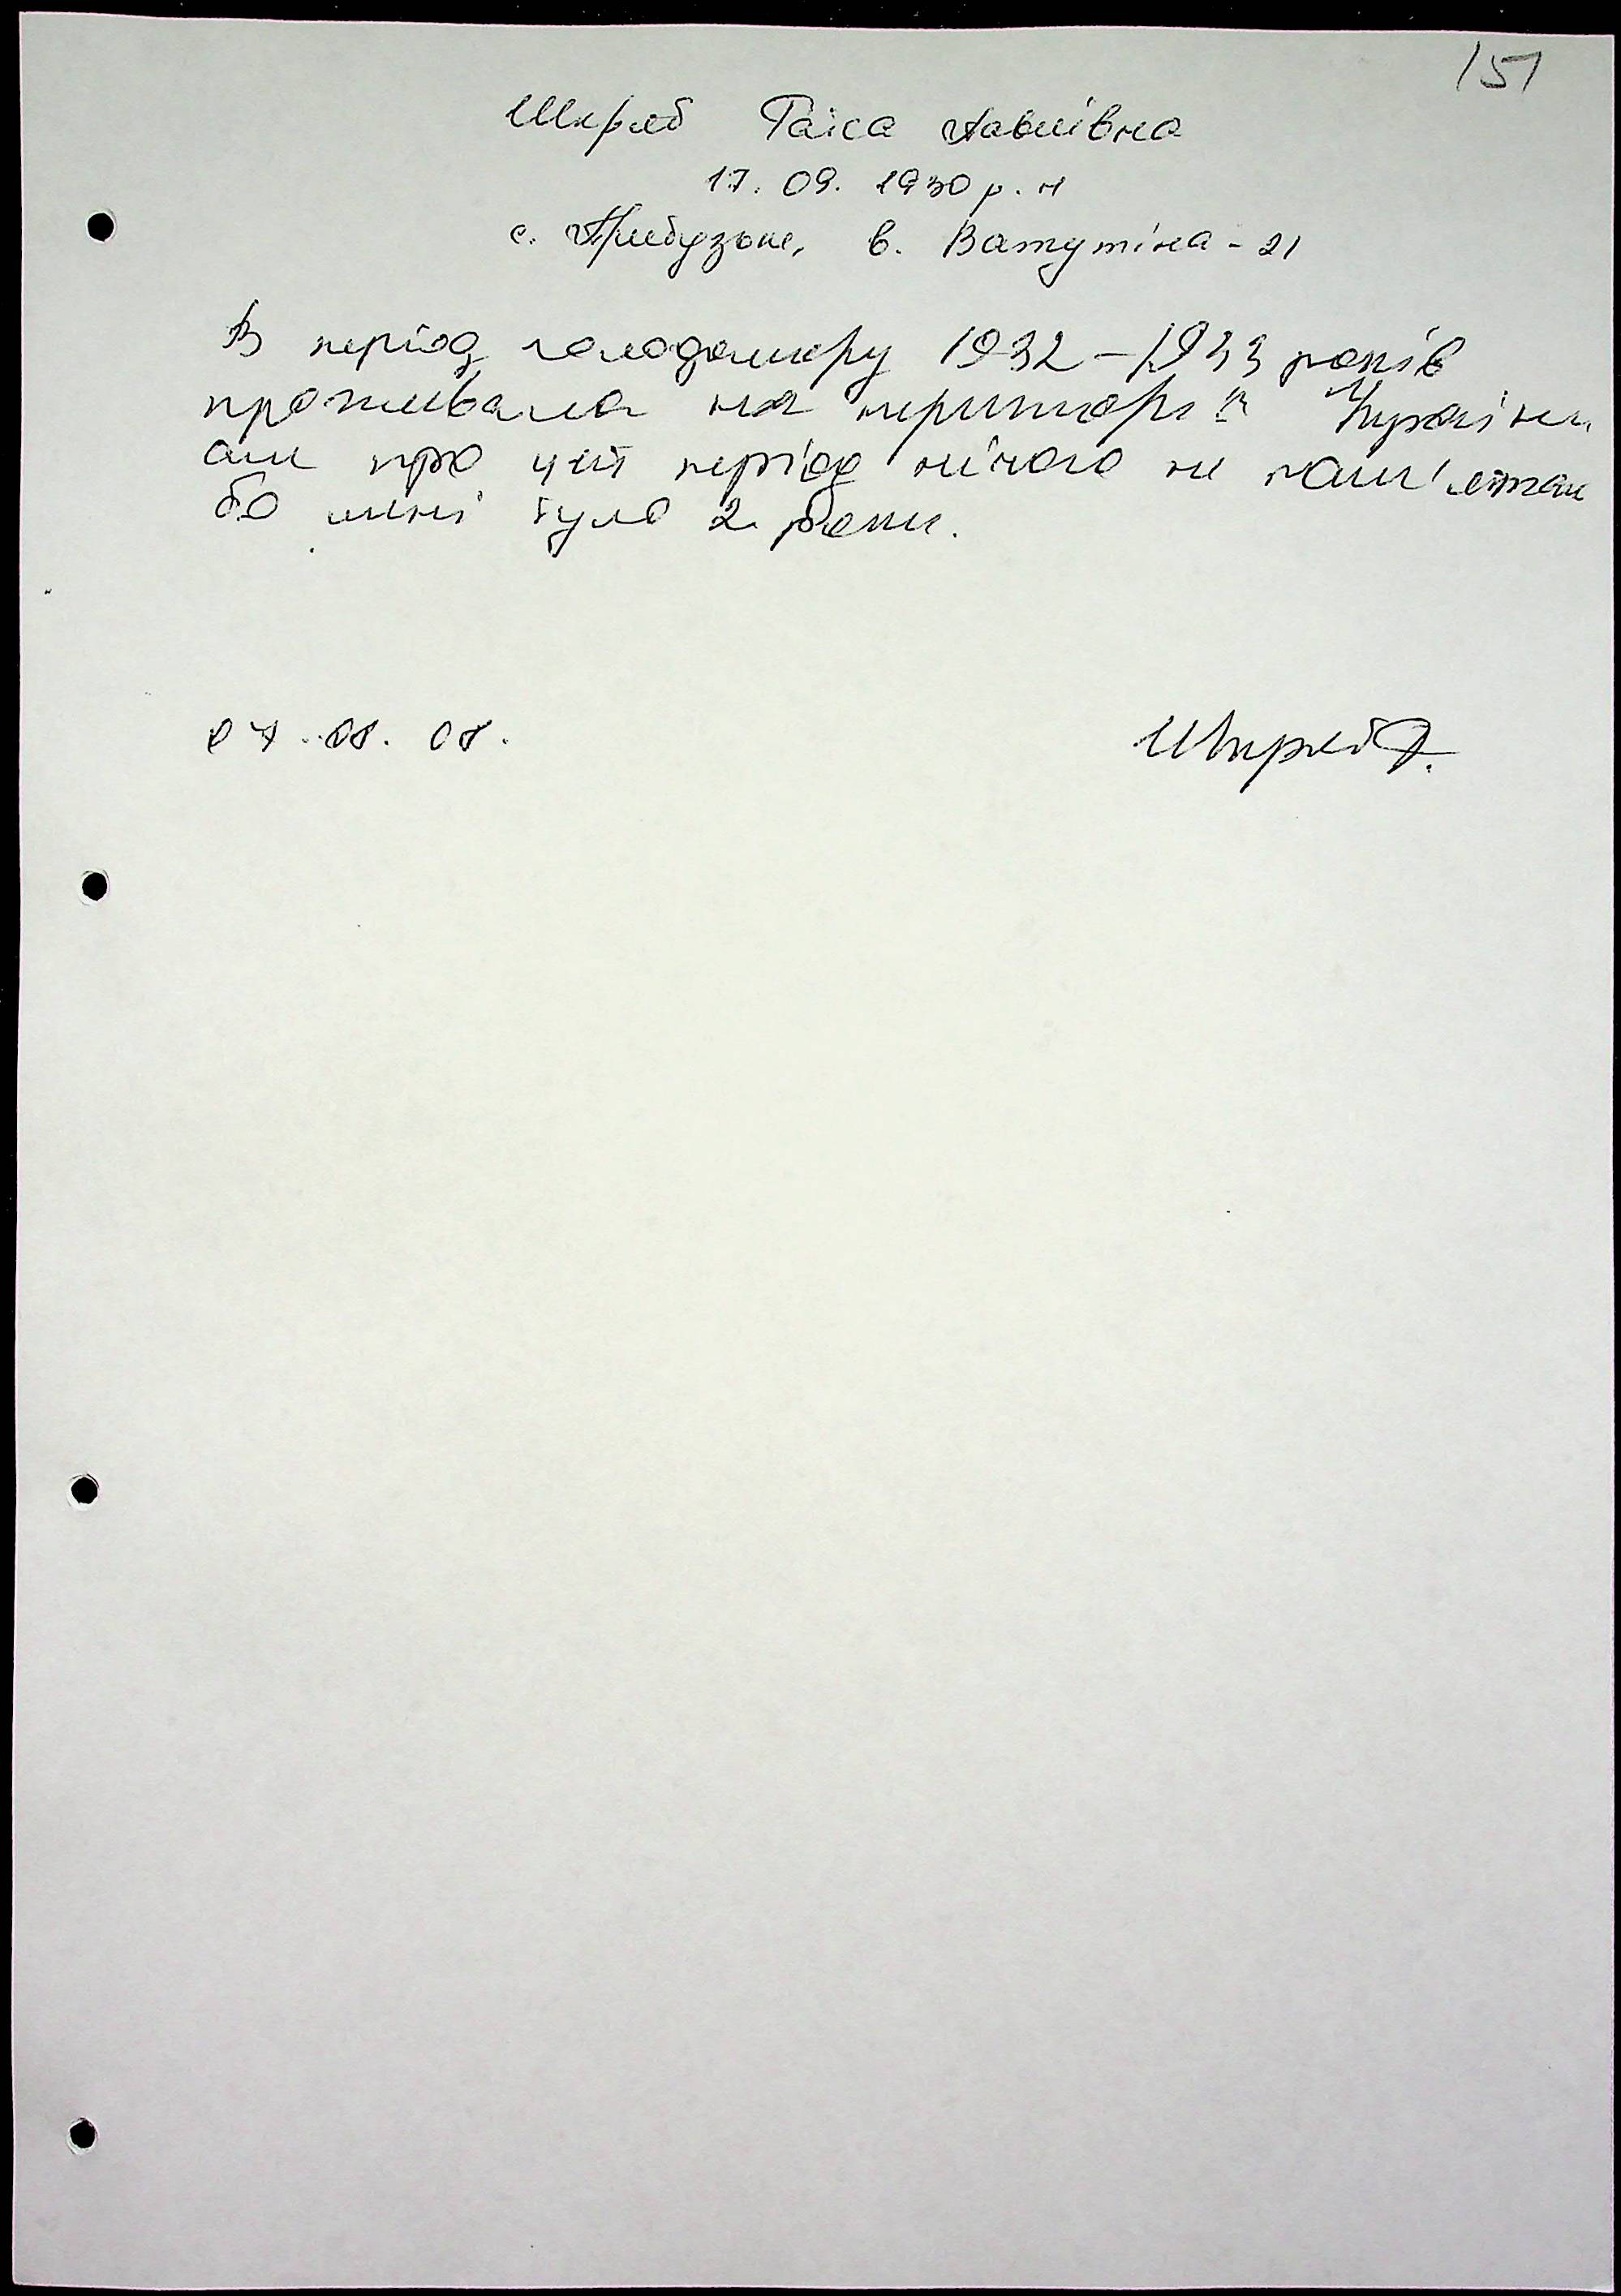 151
Шкряб Раїса Павлівна
17. 09. 1930 р. н
с. Прибузьке, в. Ватутіна - 21
В період голодомору 1932 – 1933 років
проживала на території України,
але про цей період нічого не пам'ятаю
бо мені було 2 роки.
07. 08. 08.